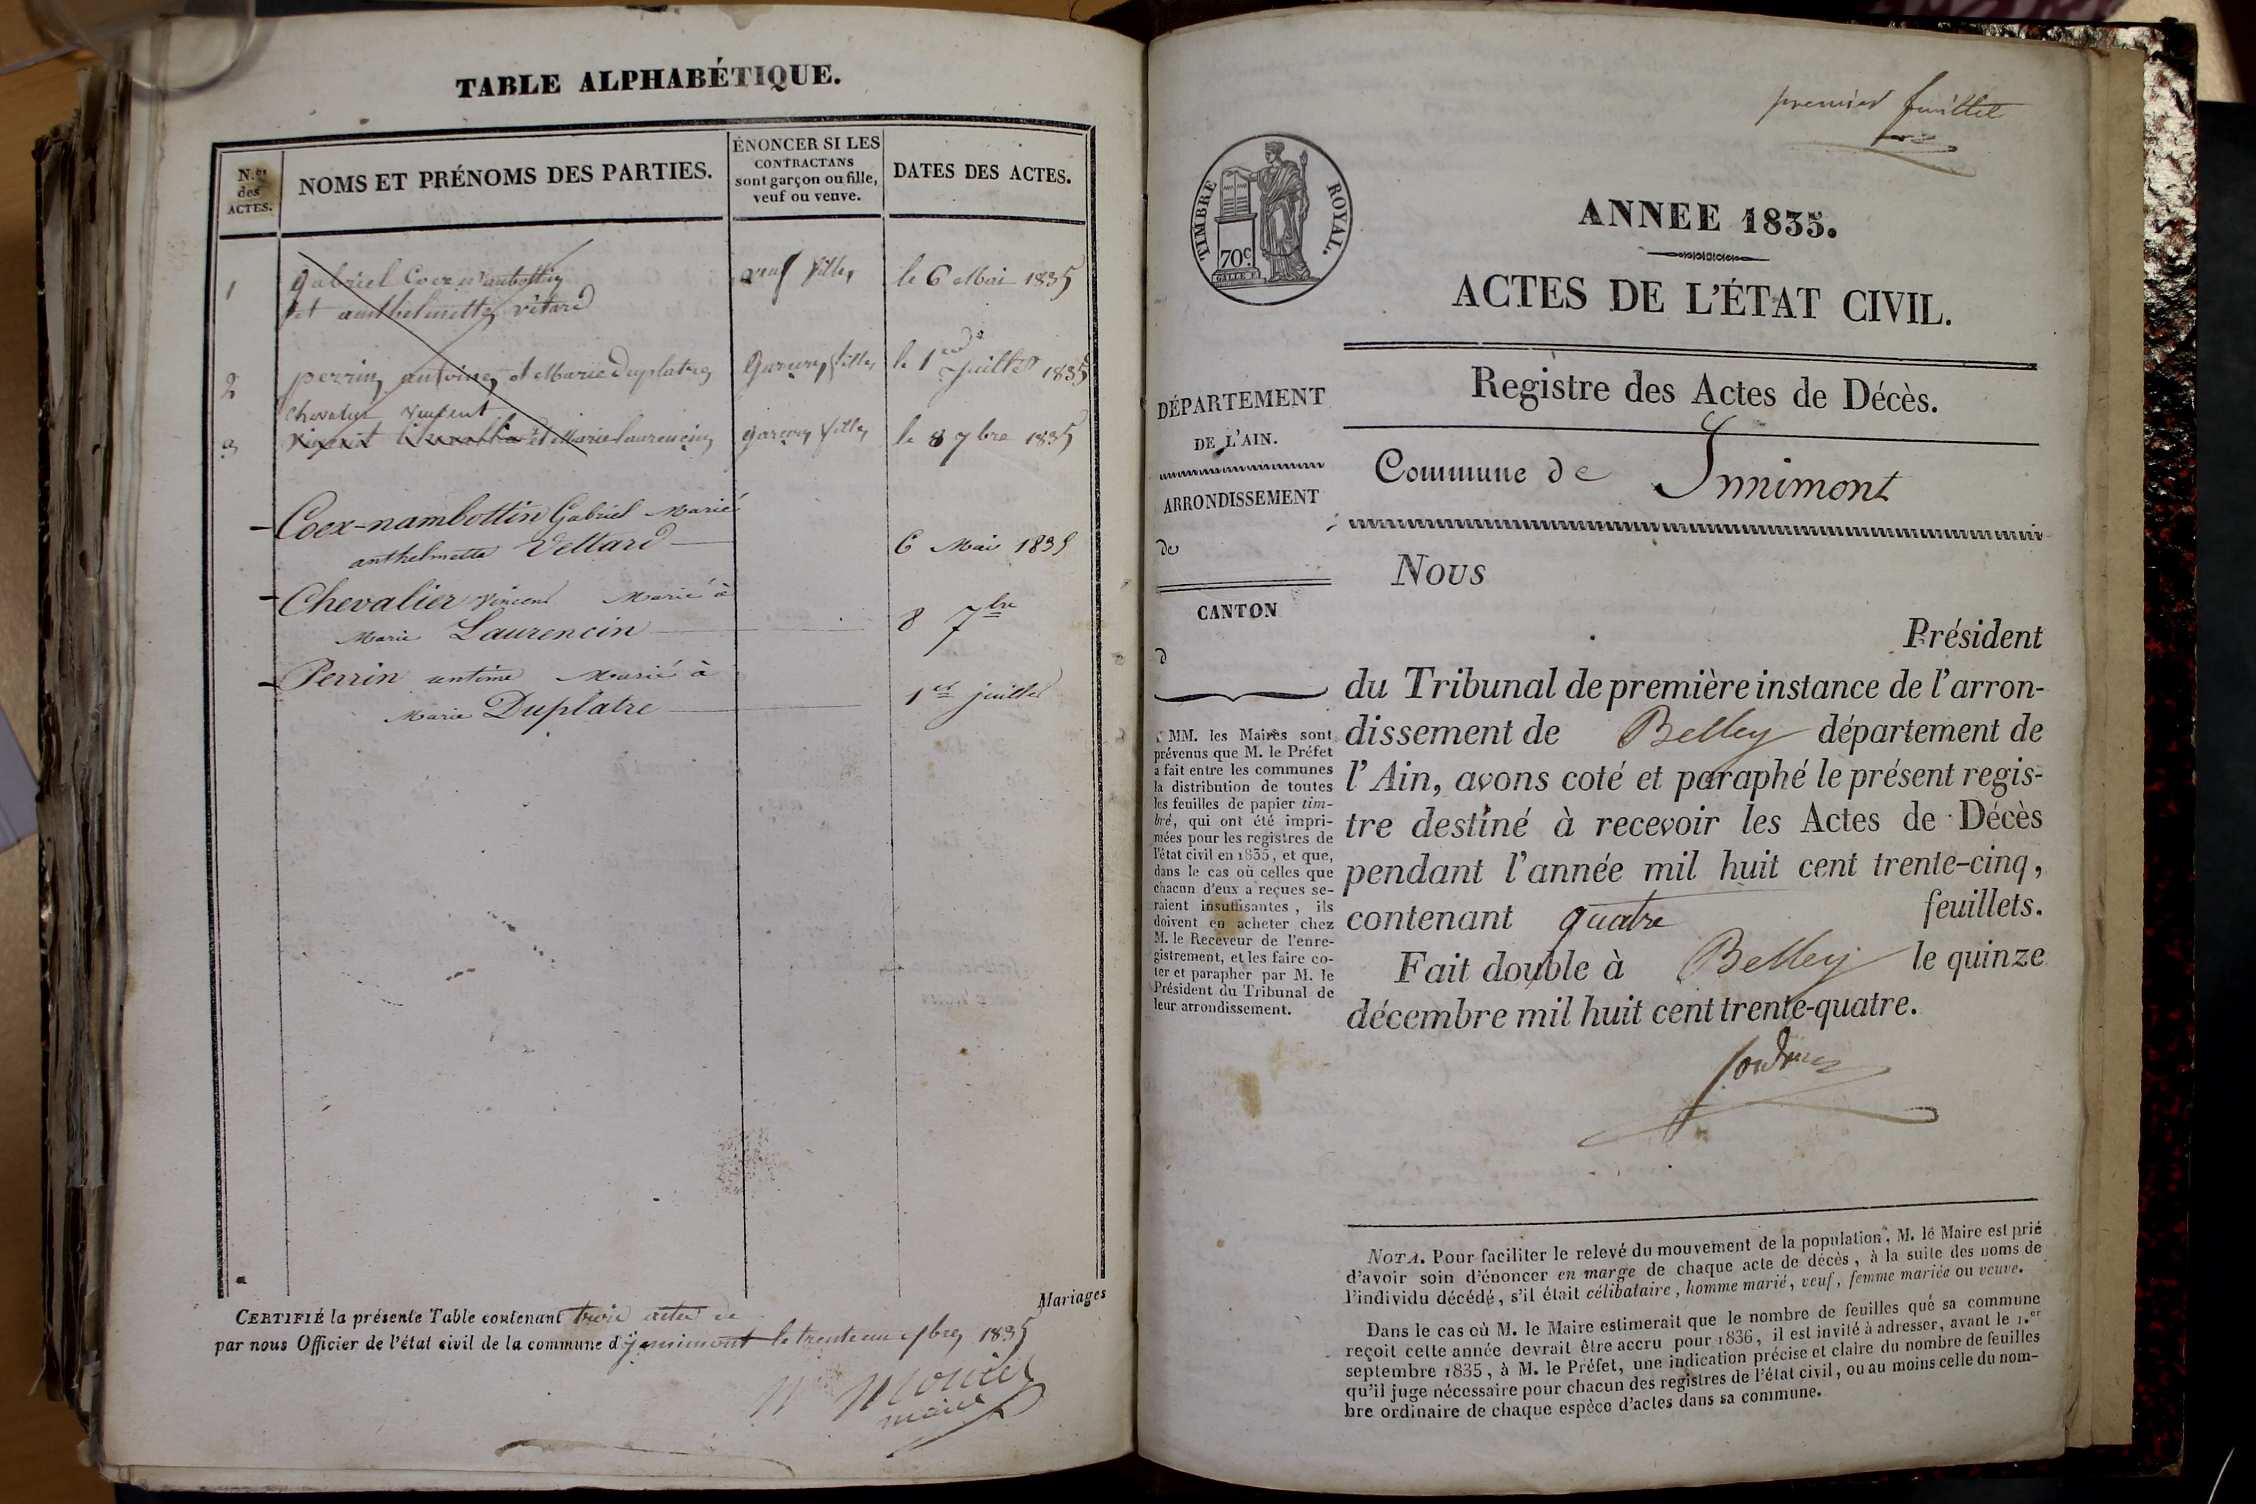 TABLE ALPHABÉTIQUE.
N.os des ACTES.
NOMS ET PRÉNOMS DES PARTIES.
ÉNONCER SI LES
CONTRACTANS
sont garçon ou fille,
veuf ou veuve.
DATES DES ACTES.
1 Gabriel Coex nambottin veuf fille le 6 Mai 1835
et anthelmette vétard
2 perrin antoine et Marie Duplatre garçon fille le 1er juillet 1835
chevalier vincent
3 et Marie laurencin garçon fille le 8 7bre 1835
Coex-nambottin Gabriel Marié
anthelmette Vettard 6 Mai 1835
Chevalier vincent Marié à
Marie Laurencin 8 7bre
Perrin antoine Marié à
Marie Duplatre 1er juillet
Mariages
CERTIFIÉ la présente Table contenant trois actes de
par nous Officier de l'état civil de la commune d'ynnimont le trente un Xbre 1835
maire
premier feuillet
TIMBRE ROYAL.
70c.
ANNEE 1835.
ACTES DE L'ÉTAT CIVIL.
DÉPARTEMENT
DE L'AIN.
ARRONDISSEMENT
de
CANTON
d
MM. les Maires sont
prévenus que M. le Préfet
a fait entre les communes
la distribution de toutes
les feuilles de papier tim-
bré, qui ont été impri-
mées pour les registres de
l'état civil en 1835, et que,
dans le cas où celles que
chacun d'eux a reçues se-
raient insuffisantes, ils
doivent en acheter chez
M. le Receveur de l'enre-
gistrement, et les faire co-
ter et parapher par M. le
Président du Tribunal de
leur arrondissement.
Registre des Actes de Décès.
Commune de Innimont
Nous
Président
du Tribunal de première instance de l'arron-
dissement de Belley département de
l'Ain, avons coté et paraphé le présent regis-
tre destiné à recevoir les Actes de Décès
pendant l'année mil huit cent trente-cinq,
contenant quatre feuillets.
Fait double à Belley le quinze
décembre mil huit cent trente-quatre.
NOTA. Pour faciliter le relevé du mouvement de la population, M. le Maire est prié
d'avoir soin d'énoncer en marge de chaque acte de décès, à la suite des noms de
l'individu décédé, s'il était célibataire, homme marié, veuf, femme mariée ou veuve.
Dans le cas où M. le Maire estimerait que le nombre de feuilles que sa commune
reçoit cette année devrait être accru pour 1836, il est invité à adresser, avant le 1.er
septembre 1835, à M. le Préfet, une indication précise et claire du nombre de feuilles
qu'il juge nécessaire pour chacun des registres de l'état civil, ou au moins celle du nom-
bre ordinaire de chaque espèce d'actes dans sa commune.